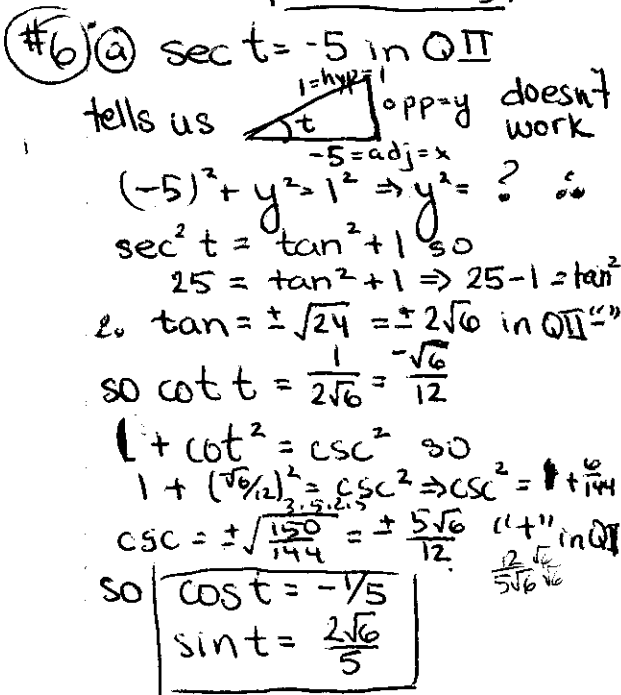 #6 a) sec t = -5 in QII
tells us 1=hyp=1 t opp=y doesn't work
-5=adj=x
(-5)² + y² = 1² ⇒ y² = ? ∴
sec² t = tan² + 1 so
25 = tan² + 1 ⇒ 25-1 = tan²
∴ tan = ± √24 = ± 2√6 in QII "-"
so cot t = 1/2√6 = -√6/12
1 + cot² = csc² so
1 + (√6/12)² = csc² ⇒ csc² = 1 + 6/144
csc = ± √150/144 = ± 5√6/12 "+" in QII
12/5√6 √6/√6
so cos t = -1/5
sin t = 2√6/5